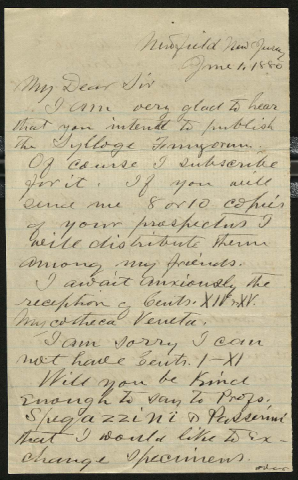 Newfield New Jersey
June 1, 1880
My Dear Sir
I am very glad to hear
that you intend to publish
the Sylloge Fungorum.
Of course I subscribe
for it. If you will
send me 8 or 10 copies
of your prospectus I
will distribute them
among my friends.
I await anxiously the
reception of Cents. XIV & XV.
Mycotheca Veneta.
I am sorry I can
not have Cents. I-XI
Will you be kind
enough to say to Profs.
Spegazzini & Passerini
that I would like to ex-
change specimens.
over